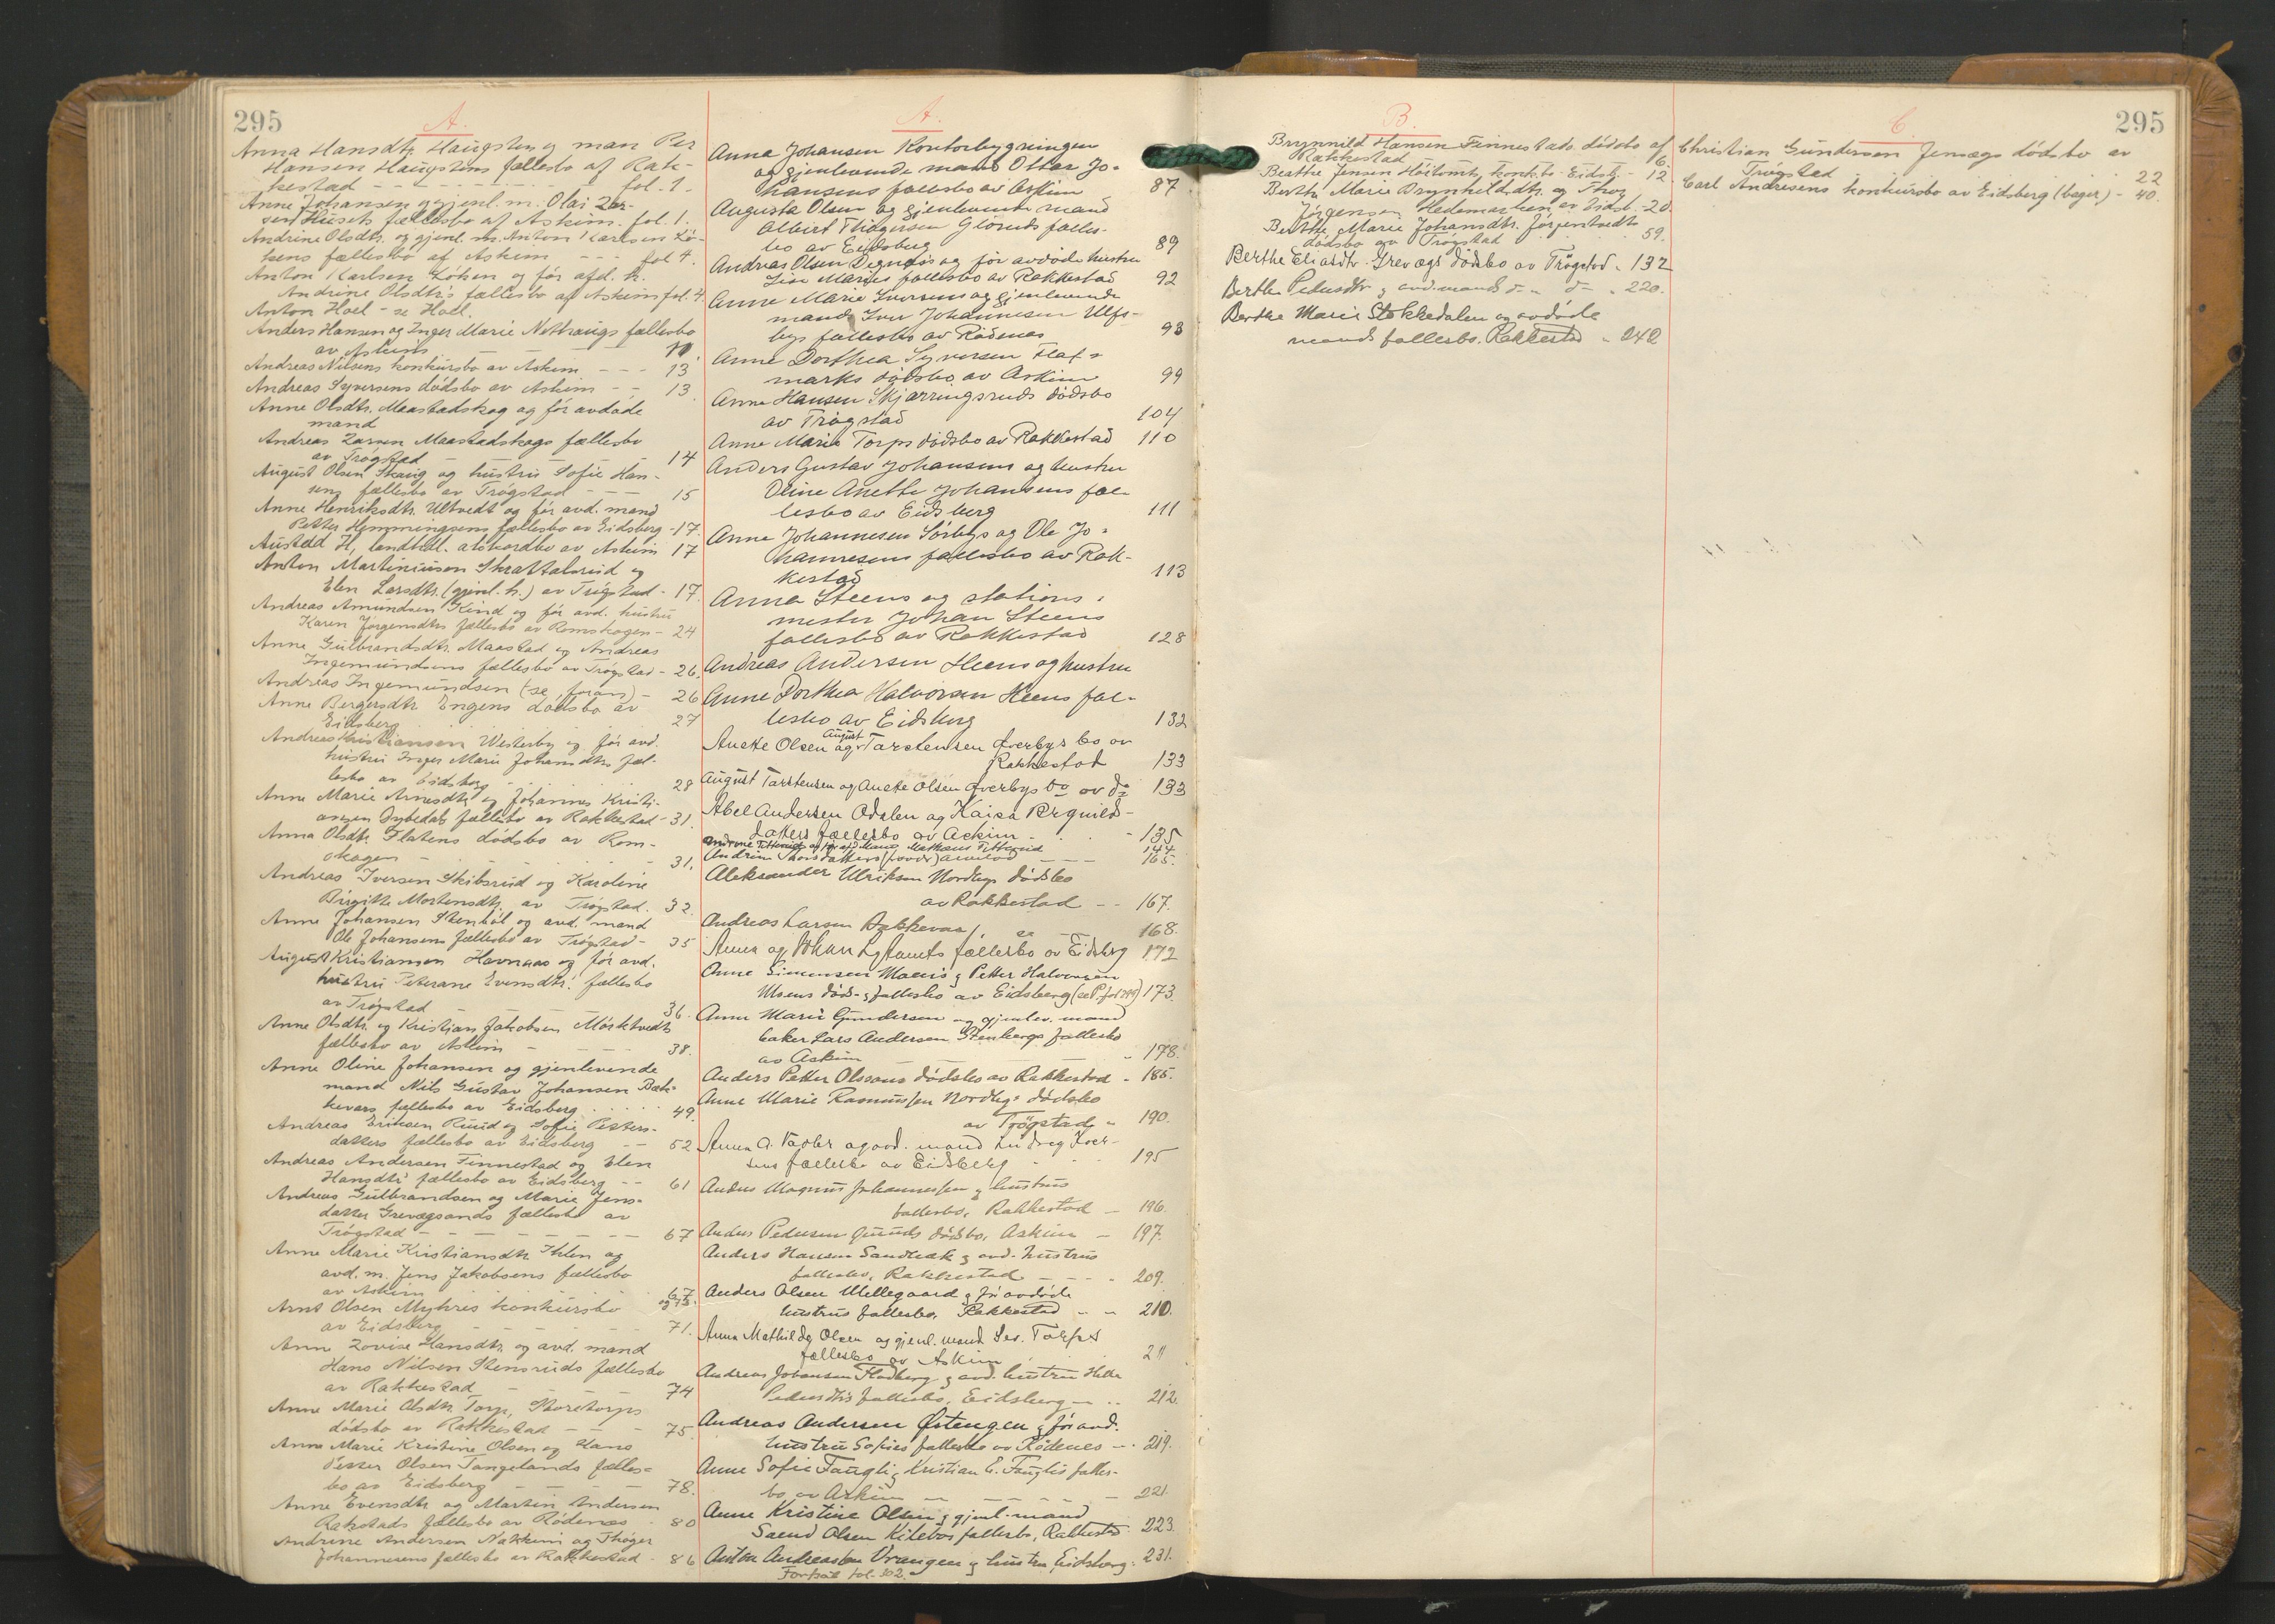 295
A.
Anna Hansdtr. Haugsten og man Per
Hansen Haugstens fællesbo af Rak-
kestad - - - - - - fol. 1.
Anne Johansen og gjenl. m. Olai
Huseth fællesbo af Askim. fol. 1.
Andrine Olsdtr. og gjenl. m. Anton Karlsen Lø-
kens fællesbo af Askim - - - fol 4.
Anton Karlsen Løken og før afd. h.
Andrine Olsdtr's fællesbo af Askim fol. 4.
Anton Hoel - se Hoel.
Anders Hansen og Inger Marie fællesbo
av Askim
Andreas Nilsens konkursbo av Askim - - - 13
Andreas Syversens dødsbo av Askim - - 13.
Anne Olsdtr. Maastadskog og før avdøde
mand
Andreas Larsen Maastadskogs fællesbo
av Trøgstad - - - 14
August Olsen Skaug og hustru Sofie Han-
sens fællesbo av Trøgstad - - - 15
Anne Henriksdtr. Ultvedt og før avd. mand
Petter Hemmingsens fællesbo av Eidsberg - 17.
Austad H, landhdl. akkordbo av Askim 17
Anton Martiniusen Skrattalsrud og
Elen Larsdtr. (gjenl. h.) av Trøgstad - 17.
Andreas Amundsen Kind og før avd. hustru
Karen Jørgensdtrs fællesbo av Romskogen - 24
Anne Gulbrandsdtr. Maastad og Andreas
Ingemundsens fællesbo av Trøgstad - 26.
Andreas Ingemundsen (se foran) - 26
Anne Bergersdtr Engens dødsbo av
Eidsberg 27
Andreas Kristiansen Westerby og før avd.
hustru Inger Marie Johansdtrs fæl-
lesbo av Eidsberg - - 28
Anne Marie Arnesdtr. og Johannes Kristi-
ansen Dybedals fællesbo av Rakkestad - 31.
Anna Olsdtr. Flatens dødsbo av Rom-
skogen - - - 31.
Andreas Iversen Skibsrud og Karoline
Birgitte Mortensdtr. av Trøgstad. 32.
Anne Johansen Stenbøl og avd. mand
Ole Johansens fællesbo av Trøgstad - 35
August Kristiansen Havnaas og før avd.
hustru Peterane Evensdtr.' fællesbo
av Trøgstad - - - 36.
Anne Olsdtr. og Kristian Jakobsen Mørktvedts
fællesbo av Askim - - - 38.
Anne Oline Johansen og gjenlevende
mand Nils Gustav Johansen Bæk-
kevars fællesbo av Eidsberg 49.
Andreas Eriksen Ruud og Sofie Petters-
datters fællesbo av Eidsberg - - 52
Andreas Andersen Finnestad og Elen
Hansdtr' fællesbo av Eidsberg - - 61
Andreas Gulbrandsen og Marie Jens-
datter Grevegsands fællesbo av
Trøgstad - - - - 67
Anne Marie Kristiansdtr. og
avd. m. Jens Jakobsens fællesbo
av Askim 67
Arnt Olsen Myhres konkursbo
av Eidsberg - - - 71.
Anne Lovise Hansdtr. og avd. mand
Hans Nilsen Stensruds fællesbo
av Rakkestad - - - 74
Anne Marie Olsdtr. Torp, Storetorps
dødsbo av Rakkestad - - - 75.
Anne Marie Kristine Olsen og Hans
Petter Olsen Tangelands fælles-
bo av Eidsberg - - - 78.
Anne Evensdtr og Martin Andersen
Rakstads fællesbo av Rødenes - 80
Andrine Andersen Nakkim og Thøger
Johannesens fællesbo av Rakkestad - 86
A.
Anna Johansen Kontorbygningen
og gjenlevende mand Ottar Jo-
hansens fællesbo av Askim 87
Augusta Olsen og gjenlevende mand
Albert Thidgersen Gløruds fælles-
bo av Eidsberg 89
Andreas Olsen Degnæs og før avdøde hustru
Lise Maries fællesbo av Rakkestad 92
Anne Marie Iversens og gjenlevende
mands Iver Johannesen Ulfs-
bys fællesbo av Rødenes 93
Anne Dorthea Syversen Flat-
marks dødsbo av Askim 99
Anne Hansen Skjærringsruds dødsbo
av Trøgstad 104
Anne Marie Torps dødsbo av Rakkestad 110
Anders Gustav Johansens og hustru
Oline Anette Johansens fæl-
lesbo av Eidsberg 111
Anne Johannesen Sørbys og Ole Jo-
hannesens fællesbo av Rak-
kestad 113
Anna Steens og stations-
mester Johan Steens
fællesbo av Rakkestad 128
Andreas Andersen Heens og hustru
Anne Dorthea Halvorsen Heens fæl-
lesbo av Eidsberg 132
Anette Olsen og August Tarstensen Øverbys bo av
Rakkestad 133
August Tarstensen og Anette Olsen Øverbys bo av do 133
Abel Andersen Odalen og Kaisa Brynild-
datters fællesbo av Askim - 135
Andrine Titterud og før afd. Mand Mathæus Titterud 144
Andrine - - - 165.
Aleksander Ulriksen Nordbys dødsbo
av Rakkestad - - 167.
Andreas Larsen Bakkevaa - 168.
Anna og Johan fællesbo av Eidsberg 172
Anne Simensen Moens & Petter Halvorsen
Moens døds- & fællesbo av Eidsberg 173.
Anne Marie Gundersen og gjenlev. mand
baker Lars Andersen Stenbergs fællesbo
av Askim - - - 178.
Anders Petter Olssons dødsbo av Rakkestad - 185.
Anne Marie Rasmussen Nordbys dødsbo
av Trøgstad - 190.
Anna A. og avd. mand Ludvig Iver-
sens fællesbo av Eidsberg - - 195
Anders Magnus Johannessen & hustrus
fællesbo, Rakkestad - 196.
Anders Pedersen dødsbo, Askim - 197.
Anders Hansen Sandbæk & avd. hustrus
fællesbo, Rakkestad - - - 209.
Anders Olsen Mellegaard & før avdøde
hustrus fællesbo, Rakkestad - - 210.
Anna Mathilde Olsen og gjenl. mand Sev. Torps
fællesbo av Askim 211
Andreas Johansen Flodberg & avd. hustru Helle
Pedersdtrs fællesbo, Eidsberg - - 212.
Andreas Andersen Østengen & før avd.
hustru Sofies fællesbo av Rødenes - 219.
Anne Sofie Fangli & Kristian E. Fanglis fælles-
bo av Askim - - - 221.
Anne Kristine Olsen & gjenl. mand
Saend Olsen Kilebos fællesbo, Rakkestad 223.
Anton Andreassen Vrangen & hustru, Eidsberg. 231.
Forts. fol. 302.
B.
Brynnild Hansen Finnestads dødsbo af
Rakkestad 6.
Beathe Jensen Høitomt, konk.bo Eidsb. - 12.
Berthe Marie Brynhildsdtr. og Thor
Jørgensen Hedemarken av Eidsb. - 20.
Berthe Marie Johansdtr. Jørgentvedts
dødsbo av Trøgstad 59.
Berthe Eliasdtr. Grevegs dødsbo av Trøgstad - 132
Berthe Pedersdtr & avd. mands do - do - 220.
Berthe Marie Stokkedalen og avdøde
mands fællesbo. Rakkestad - 242
C.
295
Christian Gundersen Jensægs dødsbo av
Trøgstad 22
Carl Andresens konkursbo av Eidsberg (bager) - 40.